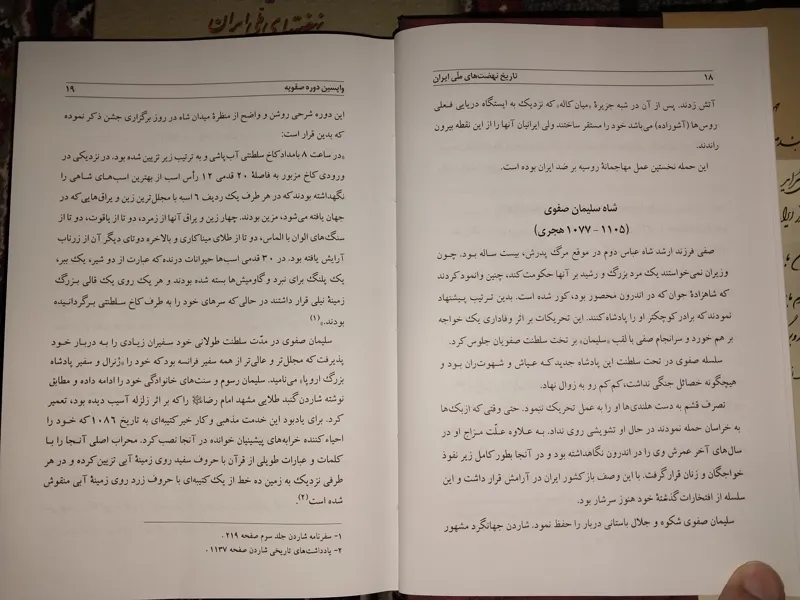 نهضتهای ملی ایران
۱۸
تاریخ نهضت‌های ملّی ایران
آتش زدند. پس از آن در شبه جزیرهٔ «میان کاله» که نزدیک به ایستگاه دریایی فعلی
روس‌ها (آشوراده) می‌باشد خود را مستقر ساختند ولی ایرانیان آنها را از این نقطه بیرون
راندند.
این حمله نخستین عمل مهاجمانهٔ روسیه بر ضد ایران بوده است.
شاه سلیمان صفوی
(۱۱۰۵ – ۱۰۷۷ هجری)
صفی فرزند ارشد شاه عباس دوم در موقع مرگ پدرش، بیست ساله بود. چون
وزیران نمی‌خواستند یک مرد بزرگ و رشید بر آنها حکومت کند، چنین وانمود کردند
که شاهزادهٔ جوان که در اندرون محصور بود، کور شده است. بدین ترتیب پیشنهاد
نمودند که برادر کوچکتر او را پادشاه کنند. این تحریکات بر اثر وفاداری یک خواجه
بر هم خورد و سرانجام صفی با لقب «سلیمان» بر تخت سلطنت صفویان جلوس کرد.
سلسله صفوی در تحت سلطنت این پادشاه جدید که عیاش و شهوت‌ران بود و
هیچگونه خصائل جنگی نداشت، کم کم رو به زوال نهاد.
تصرف قشم به دست هلندی‌ها او را به عمل تحریک ننمود. حتی وقتی که ازبک‌ها
به خراسان حمله نمودند در حال او تشویشی روی نداد. به علاوه علّت مزاج او در
سال‌های آخر عمرش وی را در اندرون نگاهداشته بود و در آنجا بطور کامل زیر نفوذ
خواجگان و زنان قرار گرفت. با این وصف باز کشور ایران در آرامش قرار داشت و این
سلسله از افتخارات گذشتهٔ خود هنوز سرشار بود.
سلیمان صفوی شکوه و جلال باستانی دربار را حفظ نمود. شاردن جهانگرد مشهور
واپسین دوره صفویه
۱۹
این دوره شرحی روشن و واضح از منظرهٔ میدان شاه در روز برگزاری جشن ذکر نموده
که بدین قرار است:
«در ساعت ۸ بامداد کاخ سلطنتی آب‌پاشی و به ترتیب زیر تزیین شده بود. در نزدیکی در
ورودی کاخ مزبور به فاصلهٔ ۲۰ قدمی ۱۲ رأس اسب از بهترین اسب‌های شاهی را
نگهداشته بودند که در هر طرف یک ردیف ۶ اسبه با مجلل‌ترین زین و یراق‌هایی که در
جهان یافته می‌شود، مزین بودند. چهار زین و یراق آنها از زمرد، دو تا از یاقوت، دو تا از
سنگ‌های الوان با الماس، دو تا از طلای میناکاری و بالاخره دوتای دیگر آن از زرناب
آرایش یافته بود. در ۳۰ قدمی اسب‌ها حیوانات درنده که عبارت از دو شیر، یک ببر،
یک پلنگ برای نبرد و گاومیش‌ها بسته شده بودند و هر یک روی یک قالی بزرگ
زمینهٔ نیلی قرار داشتند در حالی که سرهای خود را به طرف کاخ سلطنتی برگردانیده
بودند.»(۱)
سلیمان صفوی در مدّت سلطنت طولانی خود سفیران زیادی را به دربار خود
پذیرفت که مجلل‌تر و عالی‌تر از همه سفیر فرانسه بود که خود را «ژنرال و سفیر پادشاه
بزرگ اروپا» می‌نامید. سلیمان رسوم و سنت‌های خانوادگی خود را ادامه داده و مطابق
نوشته شاردن گنبد طلایی مشهد امام رضاﷺ را که بر اثر زلزله آسیب دیده بود، تعمیر
کرد. برای یادبود این خدمت مذهبی و کار خیر کتیبه‌ای به تاریخ ۱۰۸۶ که خود را
احیاء کننده خرابه‌های پیشینیان خوانده در آنجا نصب کرد. محراب اصلی آنجا را با
کلمات و عبارات طویلی از قرآن با حروف سفید روی زمینهٔ آبی تزیین کرده و در هر
طرفی نزدیک به زمین ده خط از یک کتیبه‌ای با حروف زرد روی زمینهٔ آبی منقوش
شده است(۲).
۱- سفرنامه شاردن جلد سوم صفحه ۲۱۹.
۲- یادداشت‌های تاریخی شاردن صفحه ۱۱۳۷.